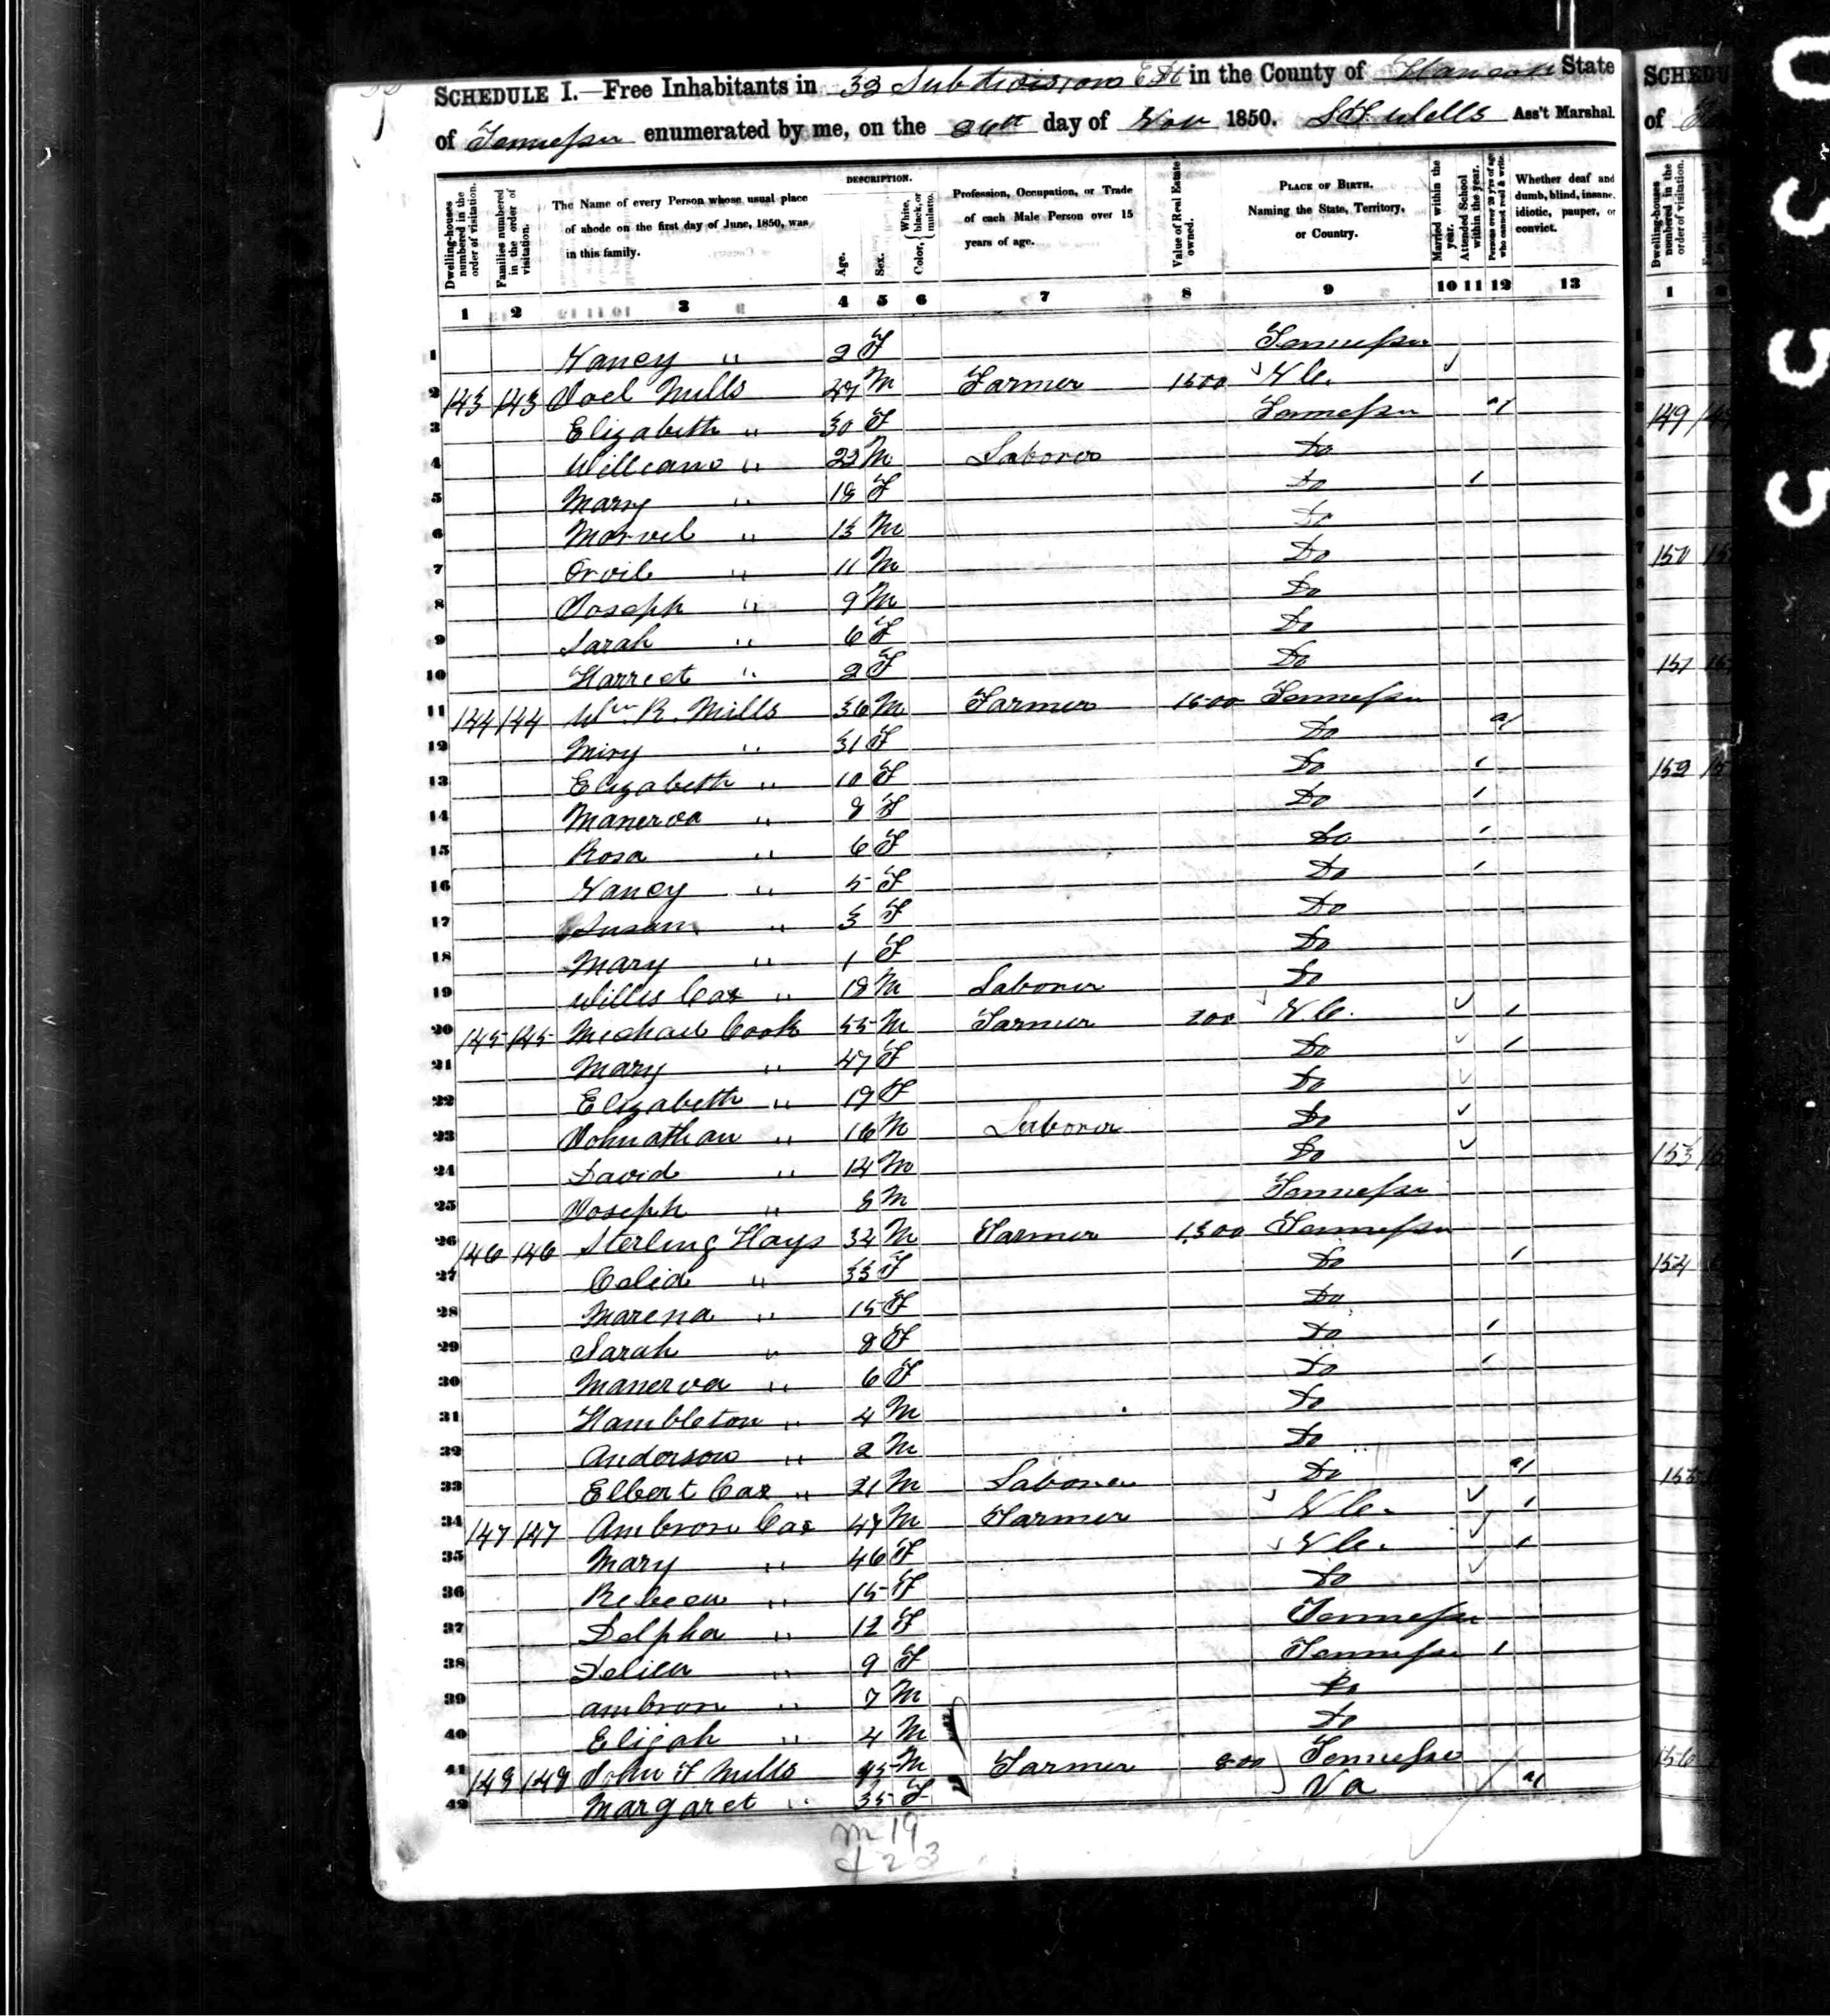 SCHEDULE I.—Free Inhabitants in 33 Subdivision E Dt in the County of Hancock State
of Tennessee enumerated by me, on the 26th day of Nov 1850. Wells Ass't Marshal.
Dwelling-houses numbered in the order of visitation.
Families numbered in the order of visitation.
The Name of every Person whose usual place of abode on the first day of June, 1850, was in this family.
DESCRIPTION.
Age.
Sex.
Color, White, black, or mulatto.
Profession, Occupation, or Trade of each Male Person over 15 years of age.
Value of Real Estate owned.
PLACE OF BIRTH. Naming the State, Territory, or Country.
Married within the year.
Attended School within the year.
Persons over 20 y'rs of age who cannot read & write.
Whether deaf and dumb, blind, insane, idiotic, pauper, or convict.
1 2 3 4 5 6 7 8 9 10 11 12 13
1 Nancy " 2 F Tennessee
2 143 143 Joel Mills M Farmer 1500 N C.
3 Elizabeth " 30 F Tennessee
4 William " 23 M Laborer Do
5 Mary " 18 F Do
6 Marvel " 13 M Do
7 Orvil " 11 M Do
8 Joseph " 9 M Do
9 Sarah " 6 F Do
10 Harriet " 2 F Do
11 144 144 Wm R. Mills 36 M Farmer 1500 Tennessee
12 Miry " 31 F Do
13 Elizabeth " 10 F Do
14 Manerva " 8 F Do
15 Rosa " 6 F Do
16 Nancy " 5 F Do
17 Susan " 3 F Do
18 Mary " 1 F Do
19 Willis Cox " 18 M Laborer Do
20 145 145 Michael Cook 55 M Farmer 200 N C.
21 Mary " 47 F Do
22 Elizabeth " 19 F Do
23 Johnathan " 16 M Laborer Do
24 David " 14 M Do
25 Joseph " 8 M Tennessee
26 146 146 Sterling Hays 34 M Farmer 1,300 Tennessee
27 Celia " 33 F Do
28 Marena " 15 F Do
29 Sarah " 8 F Do
30 Manerva " 6 F Do
31 Hambleton " 4 M Do
32 Anderson " 2 M Do
33 Elbert Cox " 21 M Laborer Do
34 147 147 Ambrose Cox 47 M Farmer N C.
35 Mary " 46 F N C.
36 Rebecca " 15 F Do
37 Delpha " 12 F Tennessee
38 " 9 F Tennessee
39 Ambrose " 7 M Do
40 Elijah " 4 M Do
41 148 148 John F Mills M Farmer 800 Tennessee
42 Margaret " 35 F Va
m 19
f 23
SCHEDU
of
149
150
151
152
153
154
155
156